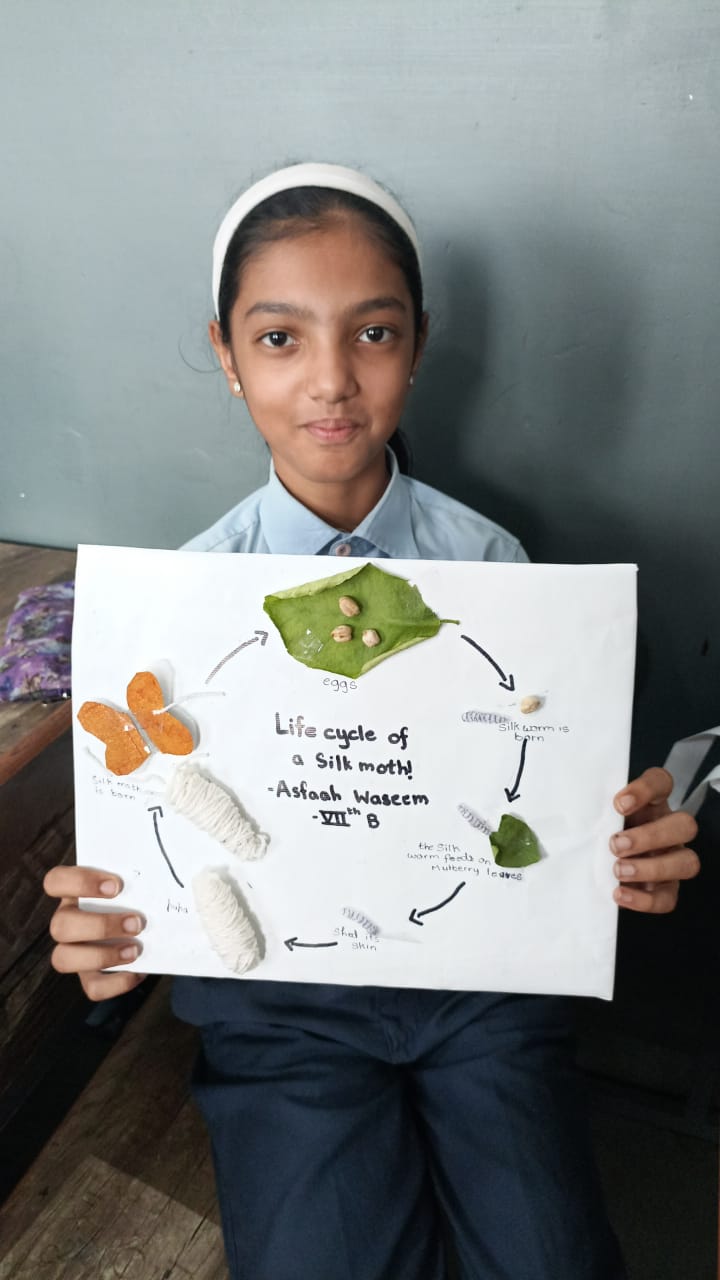 eggs
Life cycle of
a Silk moth!
-Asfaah Waseem
-VIIth B
Silk worm is
born
the Silk
worm feeds on
Mulberry leaves
Shed its
skin
pupa
Silk moth
is born